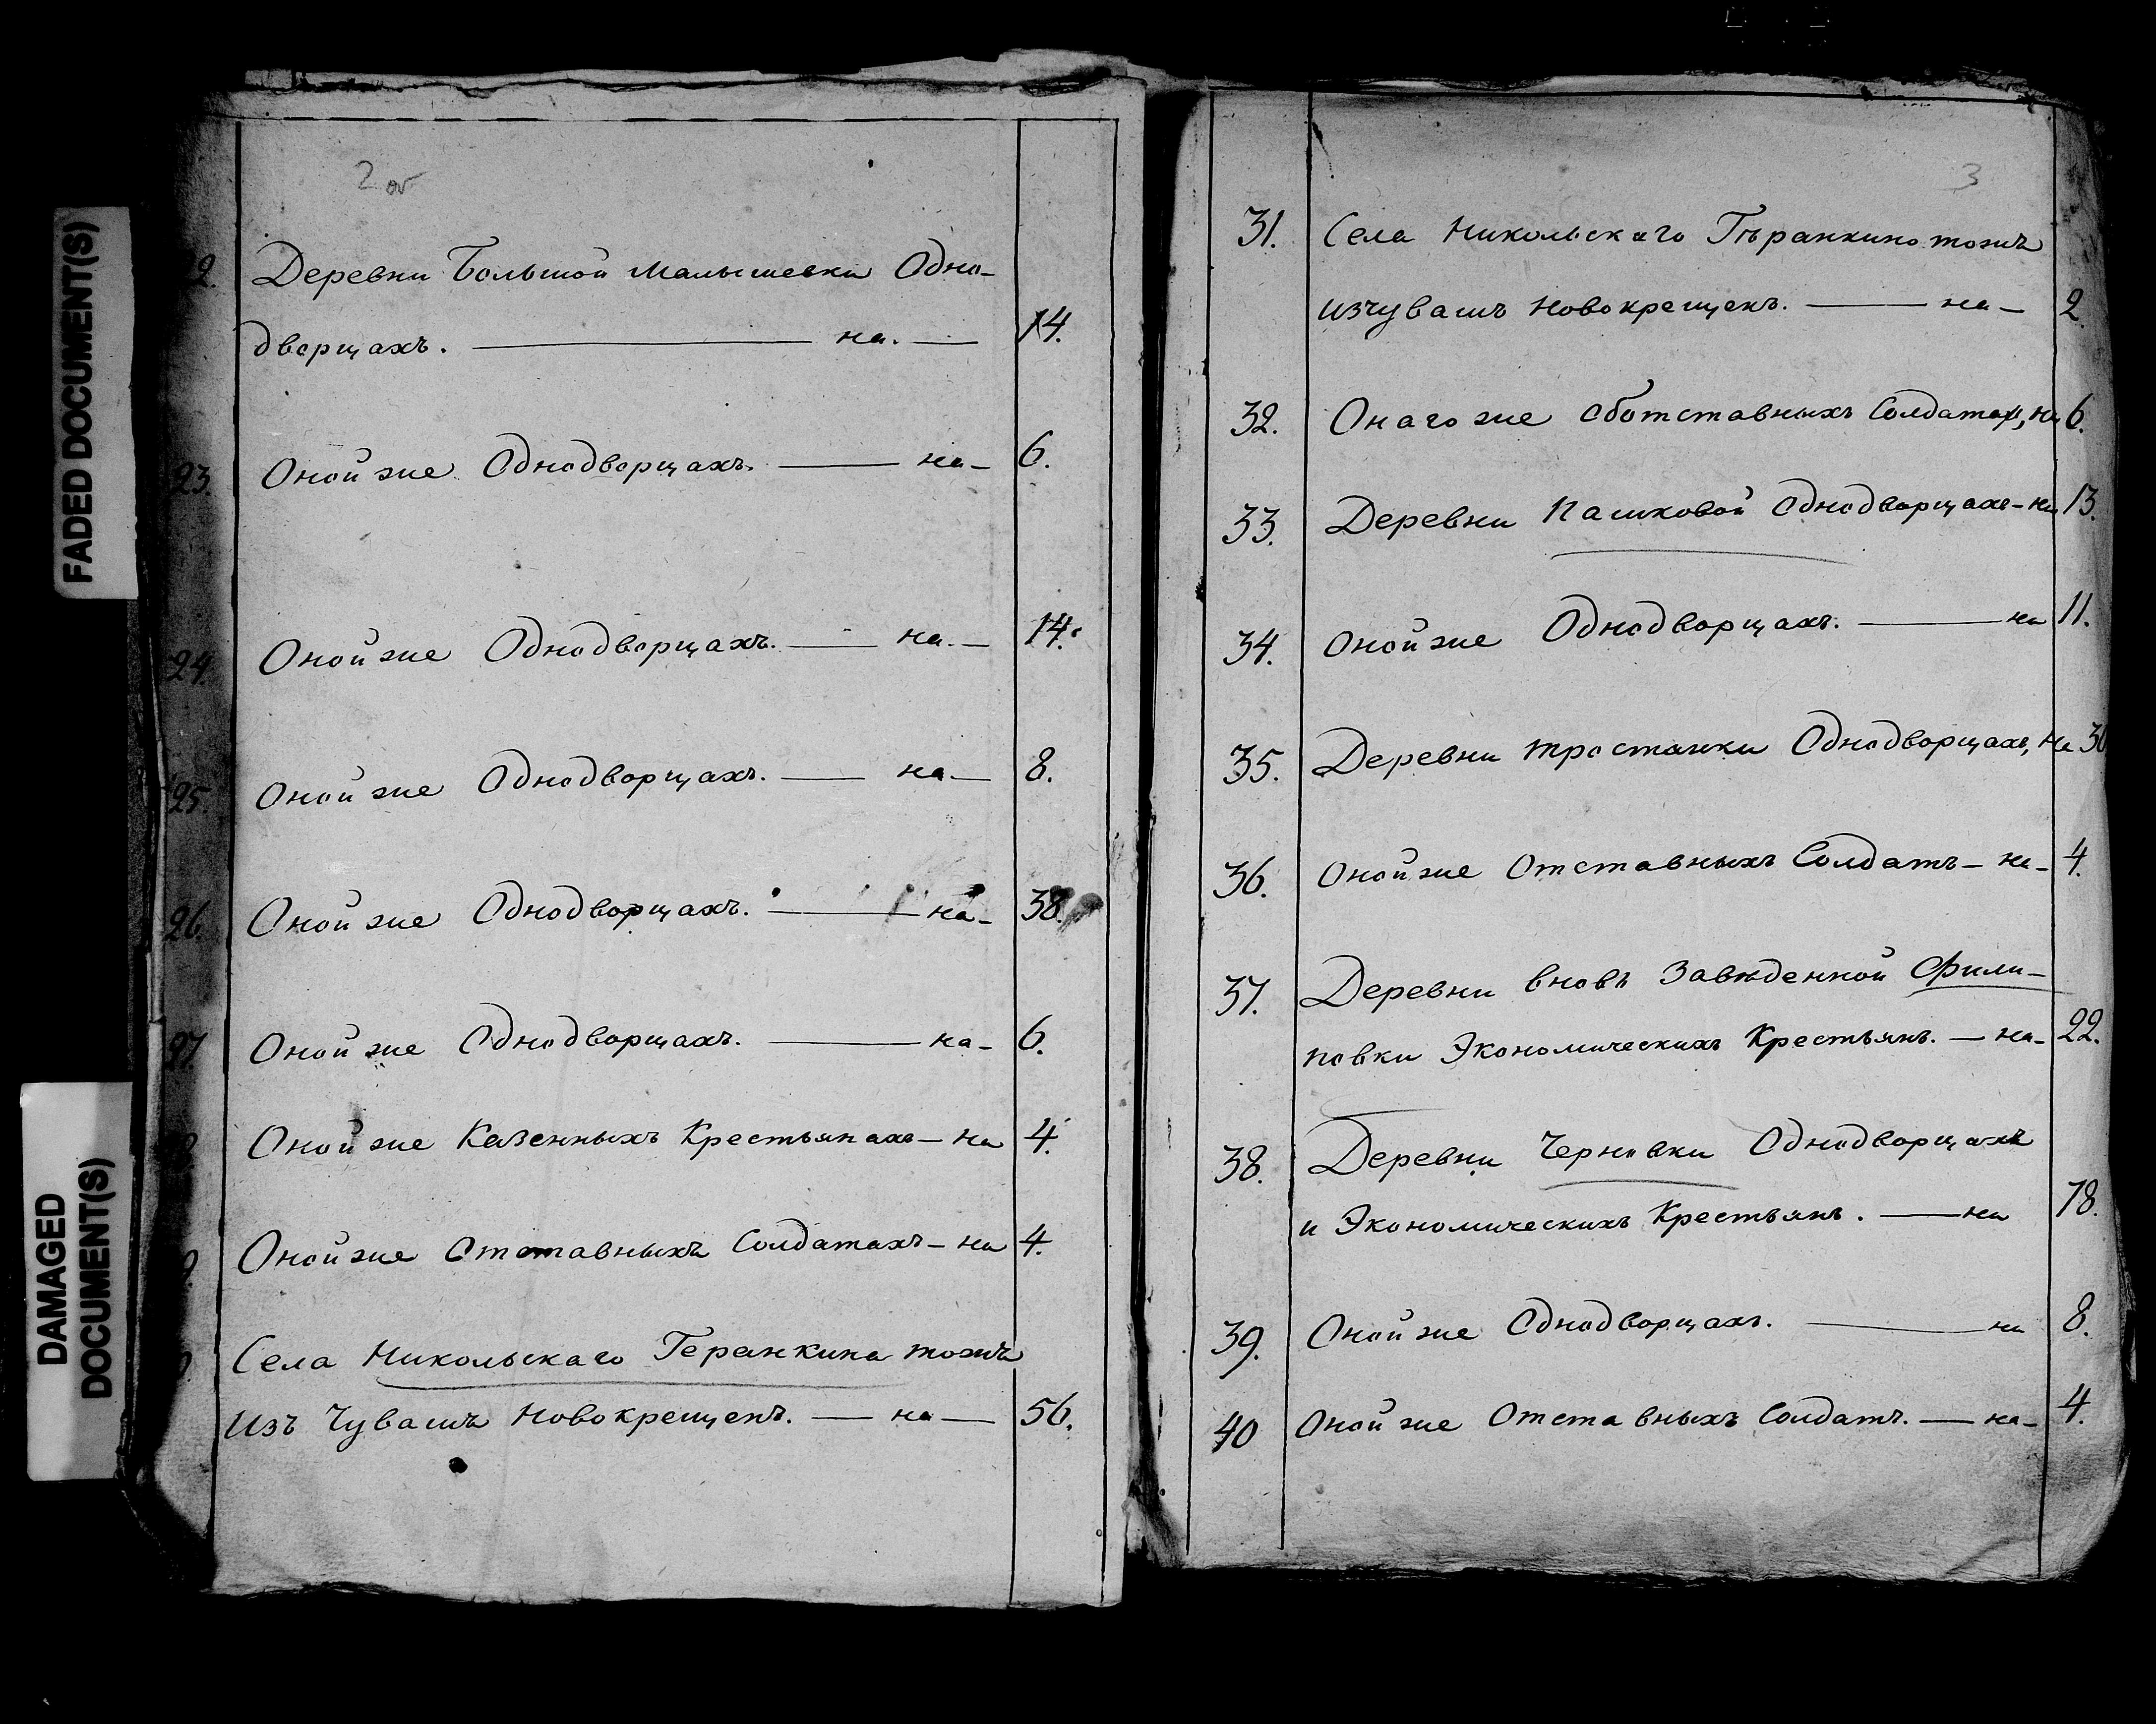 FADED DOCUMENT(S)
DAMAGED
DOCUMENT(S)
2 об
Деревни Большой Малышевки Одно-
дворцахъ. — на. — 14.
23. Оной же Однодворцахъ. — на — 6.
24. Оной же Однодворцахъ. — на. — 14.
25. Оной же Однодворцахъ. — на — 8.
26. Оной же Однодворцахъ. — на — 38.
27. Оной же Однодворцахъ. — на — 6.
Оной же Казенныхъ Крестьянахъ — на 4.
Оной же Отставныхъ Солдатахъ — на 4.
Села Никольскаго Геранкина тожъ
Изъ Чувашъ Новокрещенъ. — на — 56.
3
31. Села Никольскаго Гѣранкино тожъ
изчувашъ Новокрещенъ. — на — 2.
32. Онаго же Сботставныхъ на 6.
33. Деревни Пашковой Однодворцахъ — на 13.
34. Оной же Однодворцахъ. — на 11.
35. Деревни тростанки Однодворцахъ, на
36. Оной же Отставныхъ Солдатъ — на — 4.
37. Деревни вновь Завѣденной Фили-
повки Экономическихъ Крестьянъ. — на — 22.
38. Деревни Черновки Однодворцахъ
и Экономическихъ Крестьянъ. — на 78.
39. Оной же Однодворцахъ. — на 8.
40 Оной же Отставныхъ Солдатъ. — на — 4.